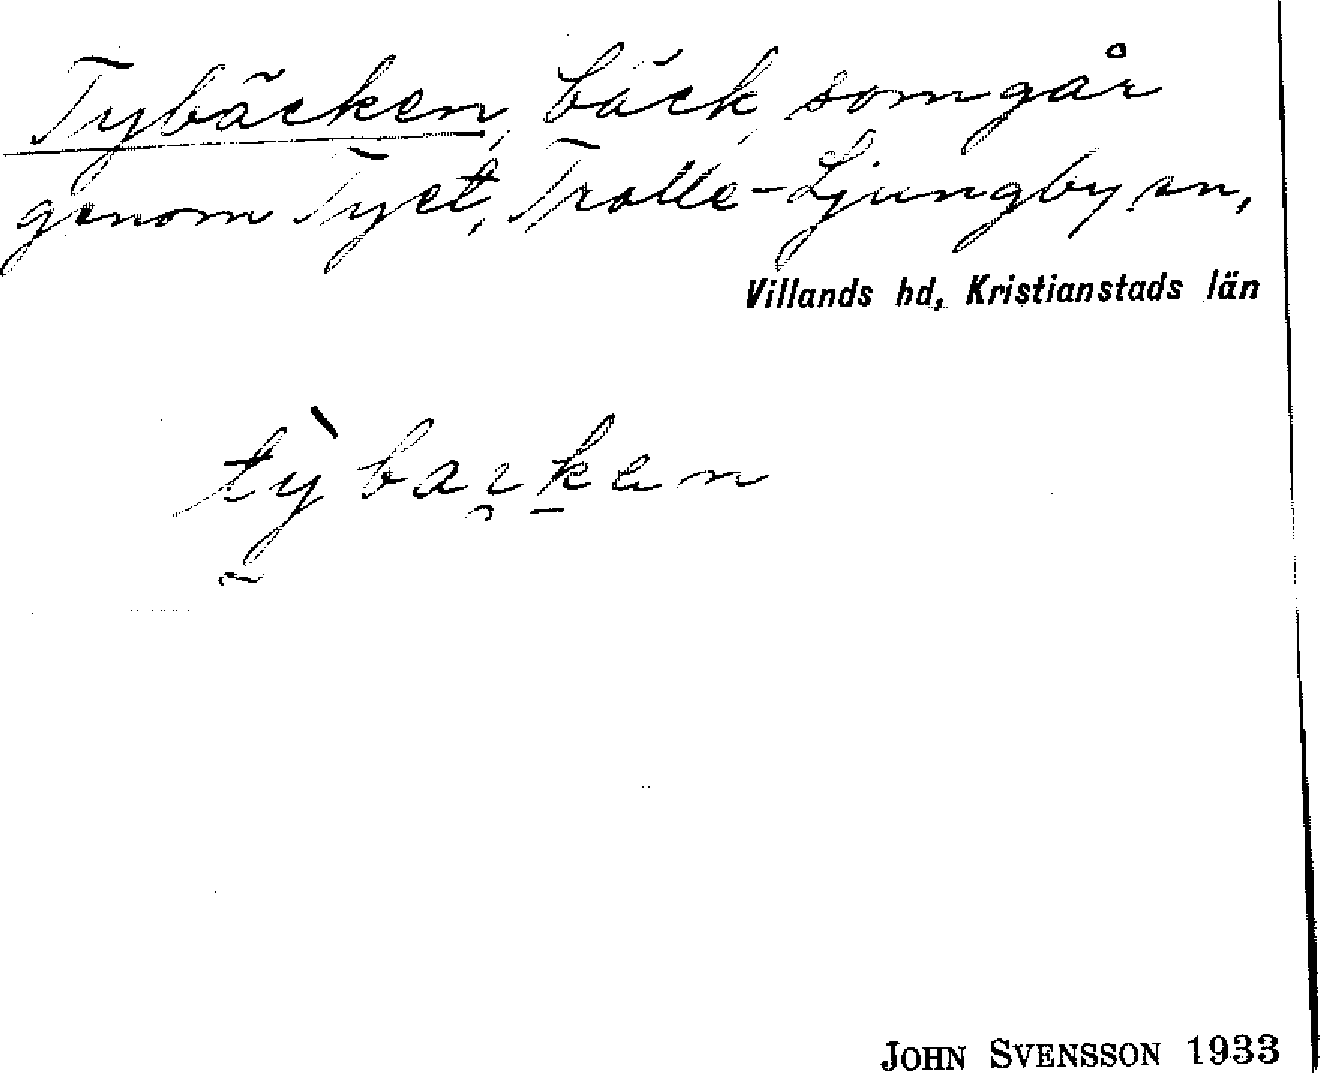 Tybäcken, bäck, som går
genom Tyet, Trolle-Ljungby sn,
Villands hd, Kristianstads län
tỳbaɛken
JOHN SVENSSON 1933